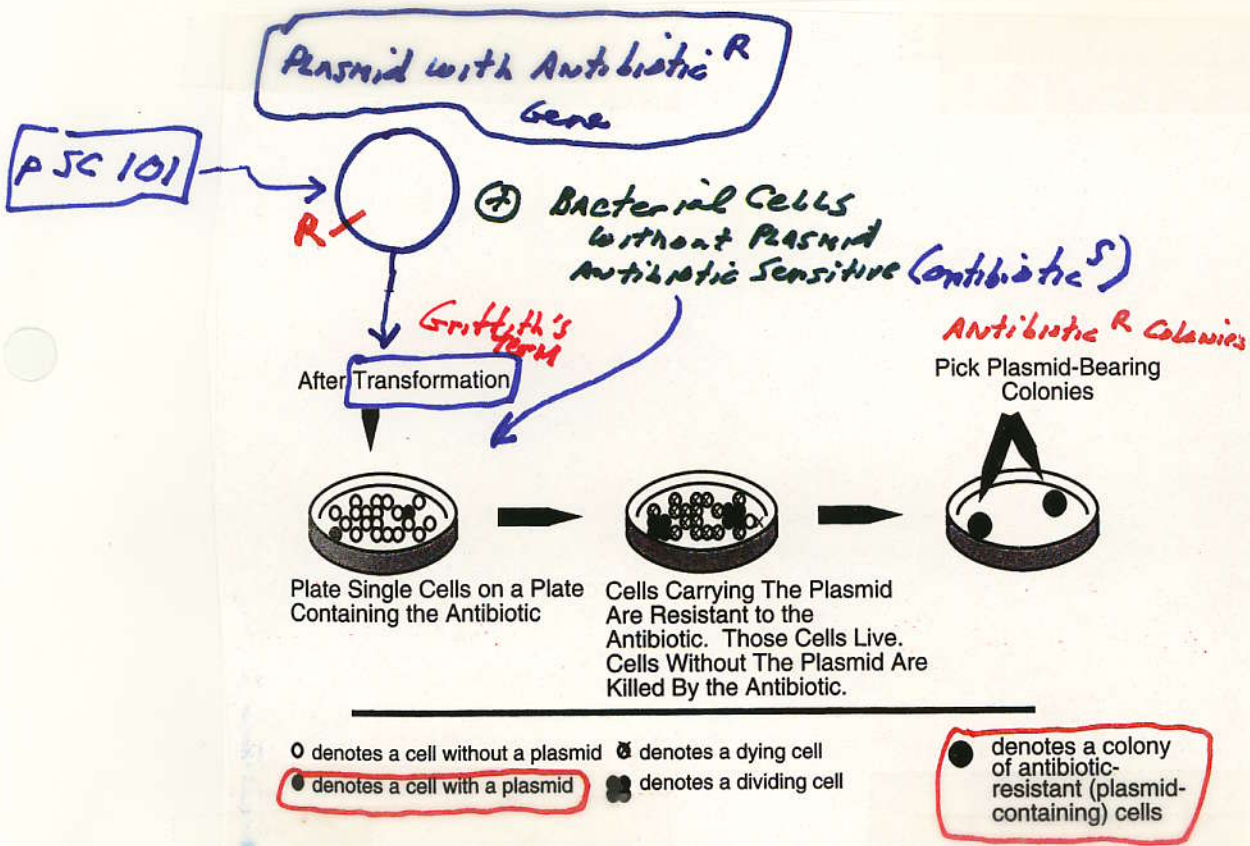 Plasmid with Antibiotic R
Gene
pSC 101
R
+ Bacterial Cells
without Plasmid
Antibiotic Sensitive (antibiotic S)
Griffith's
term
After Transformation
Antibiotic R Colonies
Pick Plasmid-Bearing
Colonies
Plate Single Cells on a Plate
Containing the Antibiotic
Cells Carrying The Plasmid
Are Resistant to the
Antibiotic. Those Cells Live.
Cells Without The Plasmid Are
Killed By the Antibiotic.
denotes a cell without a plasmid
denotes a dying cell
denotes a cell with a plasmid
denotes a dividing cell
denotes a colony
of antibiotic-
resistant (plasmid-
containing) cells